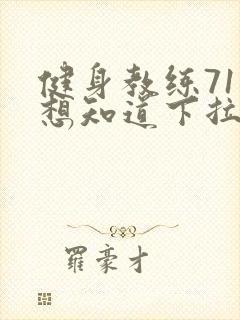 健身教练71
想知道下拉
罗豪才